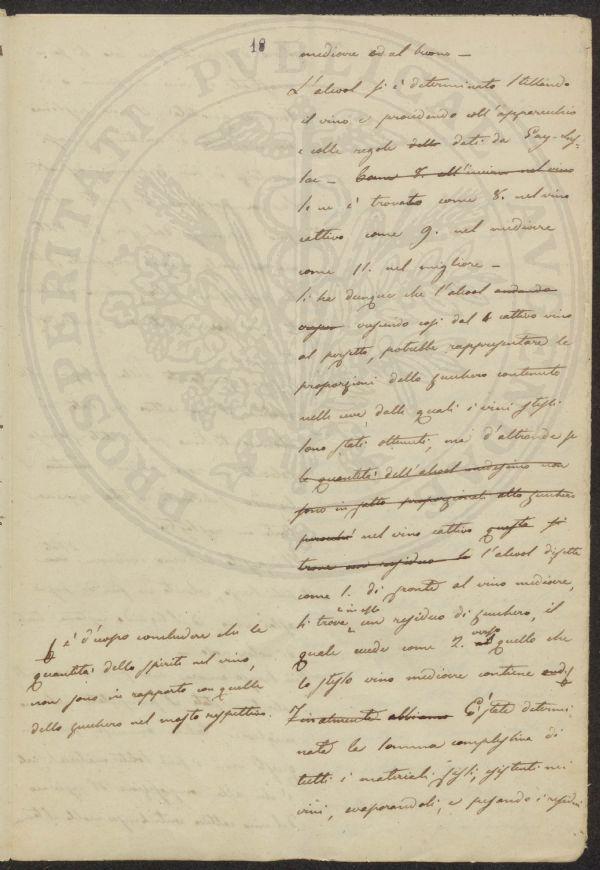 18
mediocre ed al buono –
L'alcool si è determinato stillando
il vino, e procedendo coll'apparecchio
e colle regole dello dati da Gay-Lus-
sac – Come 8. all'incirca nel vino
Se ne è trovato come 8. nel vino
cattivo come 9. nel mediocre
come 11. nel migliore –
Si ha dunque che l'alcool andando
crescendo così dal cattivo vino
al perfetto, potrebbe rappresentare le
proporzioni dello zucchero contenuto
nelle uve, dalle quali i vini stessi
sono stati ottenuti, ma d'altronde se
le quantità dell'alcool medesimo non
sono in fatto proporzionali allo zucchero
perocché nel vino cattivo questa si
trova un residuo lo l'alcool difetta
come 1. di fronte al vino mediocre,
in esso
si trova un residuo di zucchero, il
verso
quale eccede come 2. quello che
lo stesso vino mediocre contiene
Finalmente abbiamo È stata determi-
nata la somma complessiva di
tutti i materiali fissi, esistenti nei
vini, evaporandoli, e pesando i residui
è d'uopo concludere che le
quantità dello spirito nel vino,
non sono in rapporto con quelle
dello zucchero nel mosto rispettivo.
PROSPERITATI PUBLICAE